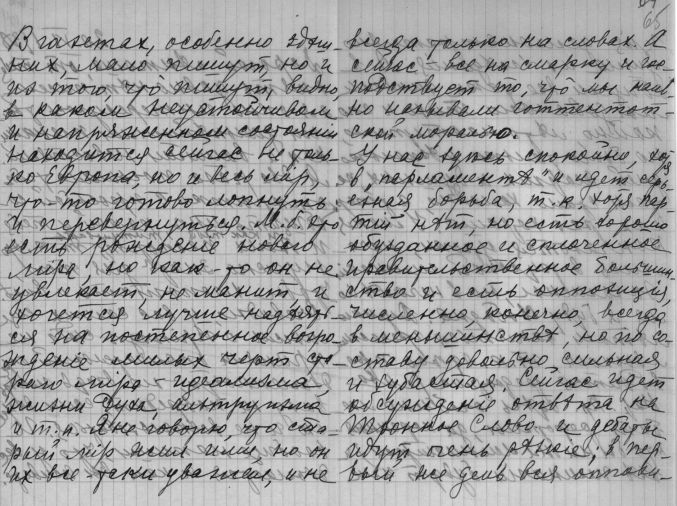 65
В газетах, особенно здѣш-
них, мало пишут, но и
из того, что пишут, видно,
в каком неустойчивом
и напряженном состоянии
находится сейчас не толь-
ко Европа, но и весь мір,
что-то готово лопнуть
и перевернуться. М. б. это
есть рожденіе нового
міра, но как-то он не
увлекает, не манит, и
хочется лучше надѣять-
ся на постепенное возро-
жденіе милых черт ста-
рого міра - идеализма,
жизни Духа, альтруизма
и т. п. Я не говорю, что ста-
рый мір жил ими, но он
их все-таки уважал, и не
всегда только на словах. А
сейчас - все на смарку и гос-
подствует то, что мы наив-
но называли готтентот-
ской моралью.
У нас здѣсь спокойно, хотя
в „парламентѣ" и идет серь-
езная борьба, т. к. хотя пар-
тій нѣт, но есть хорошо
обузданное и сплоченное
правительственное большин-
ство и есть оппозиція,
численно, конечно, всегда
в меньшинствѣ, но по со-
ставу довольно сильная
и зубастая. Сейчас идет
обсужденіе отвѣта на
Тронное Слово и дебаты
идут очень рѣзкіе; в пер-
вый же день вся оппози-